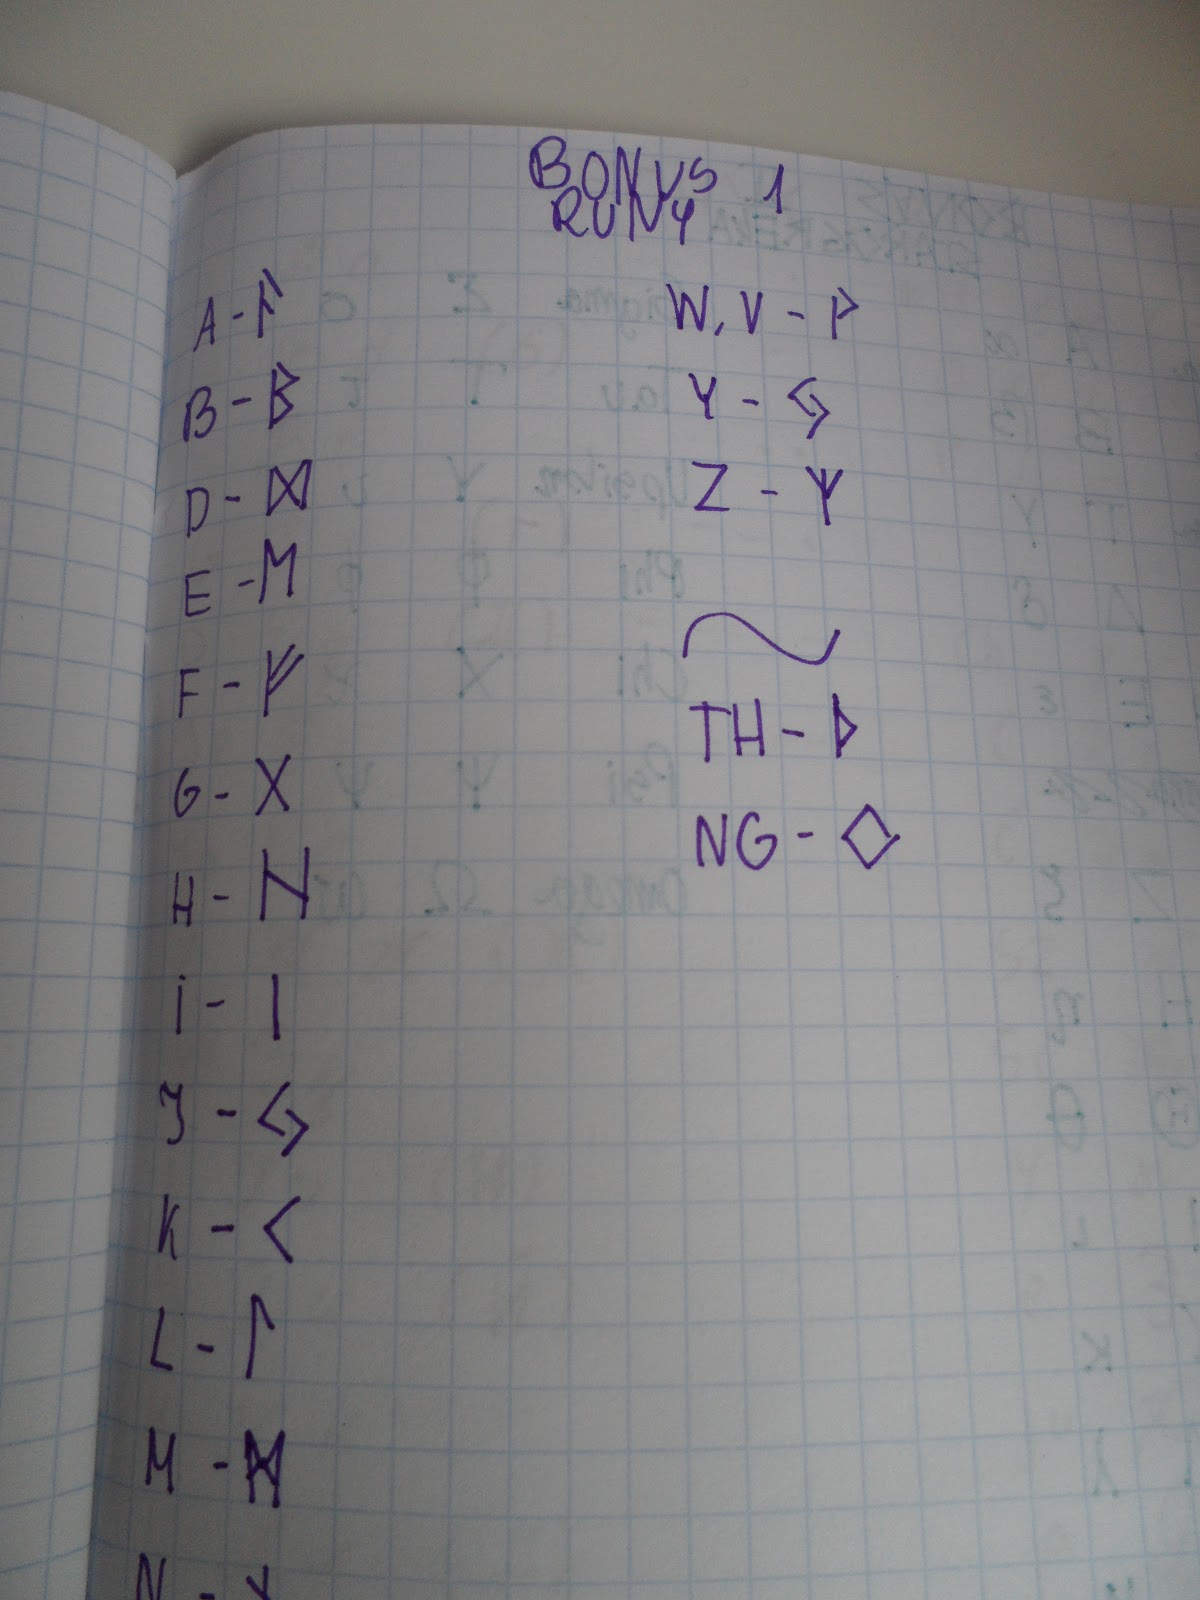 BONUS 1
RUNY
A - ᚨ
B - ᛒ
D - ᛞ
E - ᛖ
F - ᚠ
G - ᚷ
H - ᚺ
i - ᛁ
J - ᛃ
K - ᚲ
L - ᛚ
M - ᛗ
N -
W, V - ᚹ
Y - ᛃ
Z - ᛉ
TH - ᚦ
NG - ◇